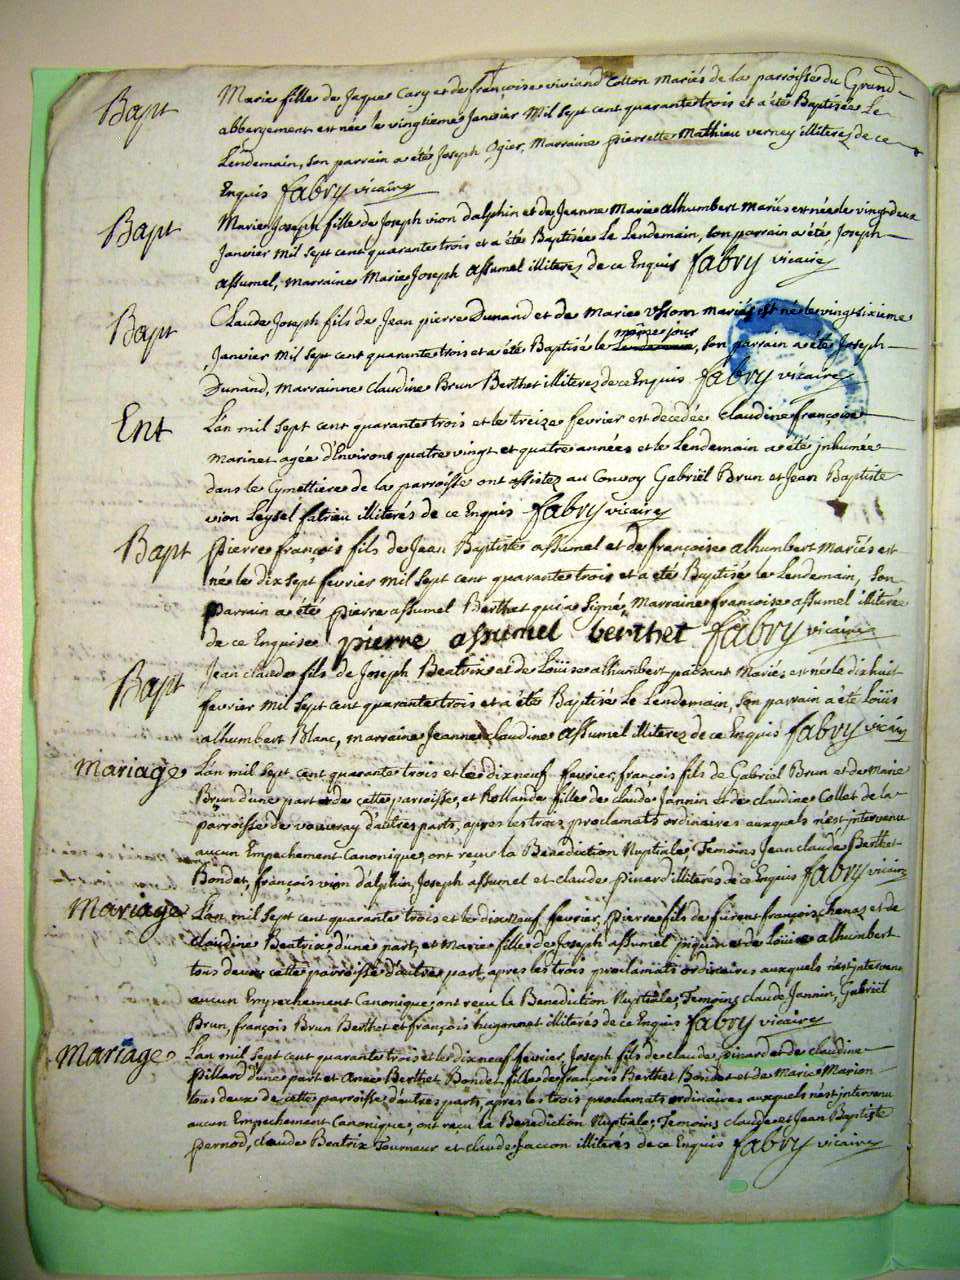 Bapt Marie fille de Jaque Cary et de françoise viviand Cotton Mariés de la parroisse du Grand
abbergement est née le vingtieme Janvier Mil Sept cent quarante trois et a été Baptisée Le
Lendemain, son parrain a été Joseph Ogier, Marraine pierrette Mathieu verney illiterez de ce
Enquis fabry vicaire
Bapt Marie Joseph fille de Joseph vion dalphin et de Jeanne Marie alhumbert mariés est née le vingt deux
Janvier Mil Sept cent quarante trois et a été Baptisée Le Lendemain, son parrain a été Joseph
assumel, marraine Marie Joseph assumel illiterez de ce Enquis fabry vicaire
Bapt Claude Joseph fils de Jean pierre Dunand et de Marie mariés est né le vingt sixieme
même jour
Janvier Mil Sept cent quarante trois et a été Baptisé le Lendemain, son parrain a été Joseph
Dunand, Marrainne Claudine Brun Berthet illiterez de ce Enquis fabry vicaire
Ent L'an mil Sept cent quarante trois et le treize fevrier est decedée Claudine françoise
Marinet agée d'Environs quatre vingt et quatre années et le Lendemain a été inhumée
dans le Cymettiere de la parroisse ont assistez au Convoy Gabriël Brun et Jean Baptiste
vion Leysel illiterés de ce Enquis fabry vicaire
Bapt pierre françois fils de Jean Baptiste assumel et de françoise alhumbert mariés est
né le dix sept fevrier Mil Sept cent quarante trois et a été Baptisé le Lendemain, Son
parrain a été pierre assumel Berthet qui a Signé, Marraine francoise assumel illiterée
de ce Enquise pierre assumel berthet fabry vicaire
Bapt Jean claude fils de Joseph Beatrix et de Loüise alhumbert paisant Mariés est né le dixhuit
fevrier Mil Sept cent quarante trois et a été Baptisé Le Lendemain, Son parrain a été Loüis
alhumbert Blanc, marraine Jeanne claudine assumel illiterez de ce Enquis fabry vicaire
Mariage L'an mil Sept cent quarante trois et le dixneuf fevrier, françois fils de Gabriel Brun et de Marie
Brun d'une part de cette parroisse, et Rollande fille de claude Jannin et de claudine Collet de la
parroisse de vouvray d'autres parts, apres les trois proclamats ordinaires auxquels n'est intervenu
aucun Empechement Canonique, ont reçu la Benediction Nuptiale, Temoins Jean claude Berthet
Bondet, françois vion d'alphin, Joseph assumel et claude pinard illiteres de ce Enquis fabry vicaire
Mariage L'an mil Sept cent quarante trois et le dixneuf fevrier, pierre fils de furent françois et de
claudine Beatrix d'une part, et Marie fille de Joseph assumel et de Loüise alhumbert
tous deux cette parroisse d'autre part, apres les trois proclamats ordinaires auxquels n'est intervenu
aucun Empechement Canonique, ont recu la Benediction Nuptiale, Temoins claude Jannin, Gabriël
Brun, françois Brun Berthet et françois huyonnet illiterés de ce Enquis fabry vicaire
Mariage L'an mil Sept cent quarante trois et le dixneuf fevrier, Joseph fils de claude pinard et de claudine
Pillard d'une part et Anne Berthet Bondet fille de françois Berthet Bondet et de Marie Marion
tous deux de cette parroisse d'autres parts, apres les trois proclamats ordinaires auxquels n'est intervenu
aucun Empechement Canonique, ont reçu la Benediction Nuptiale, Temoins claude et Jean Baptiste
pernod, claude Beatrix Tourneur et claude illiteres de ce Enquis fabry vicaire